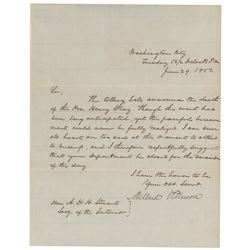 Washington City
Tuesday 12½ o'clock P.M.
June 29, 1852
Sir,
The tolling bells announce the death
of the Hon. Henry Clay. Though this event has
been long anticipated, yet the painful bereave-
ment could never be fully realized. I am sure
all hearts are too sad at this moment to attend
to business, and I therefore respectfully suggest
that your department be closed for the remainder
of the day.
I have the honor to be
Your Obt. Servt.
Millard Fillmore
Hon. A. H. H. Stuart
Secy. of the Interior